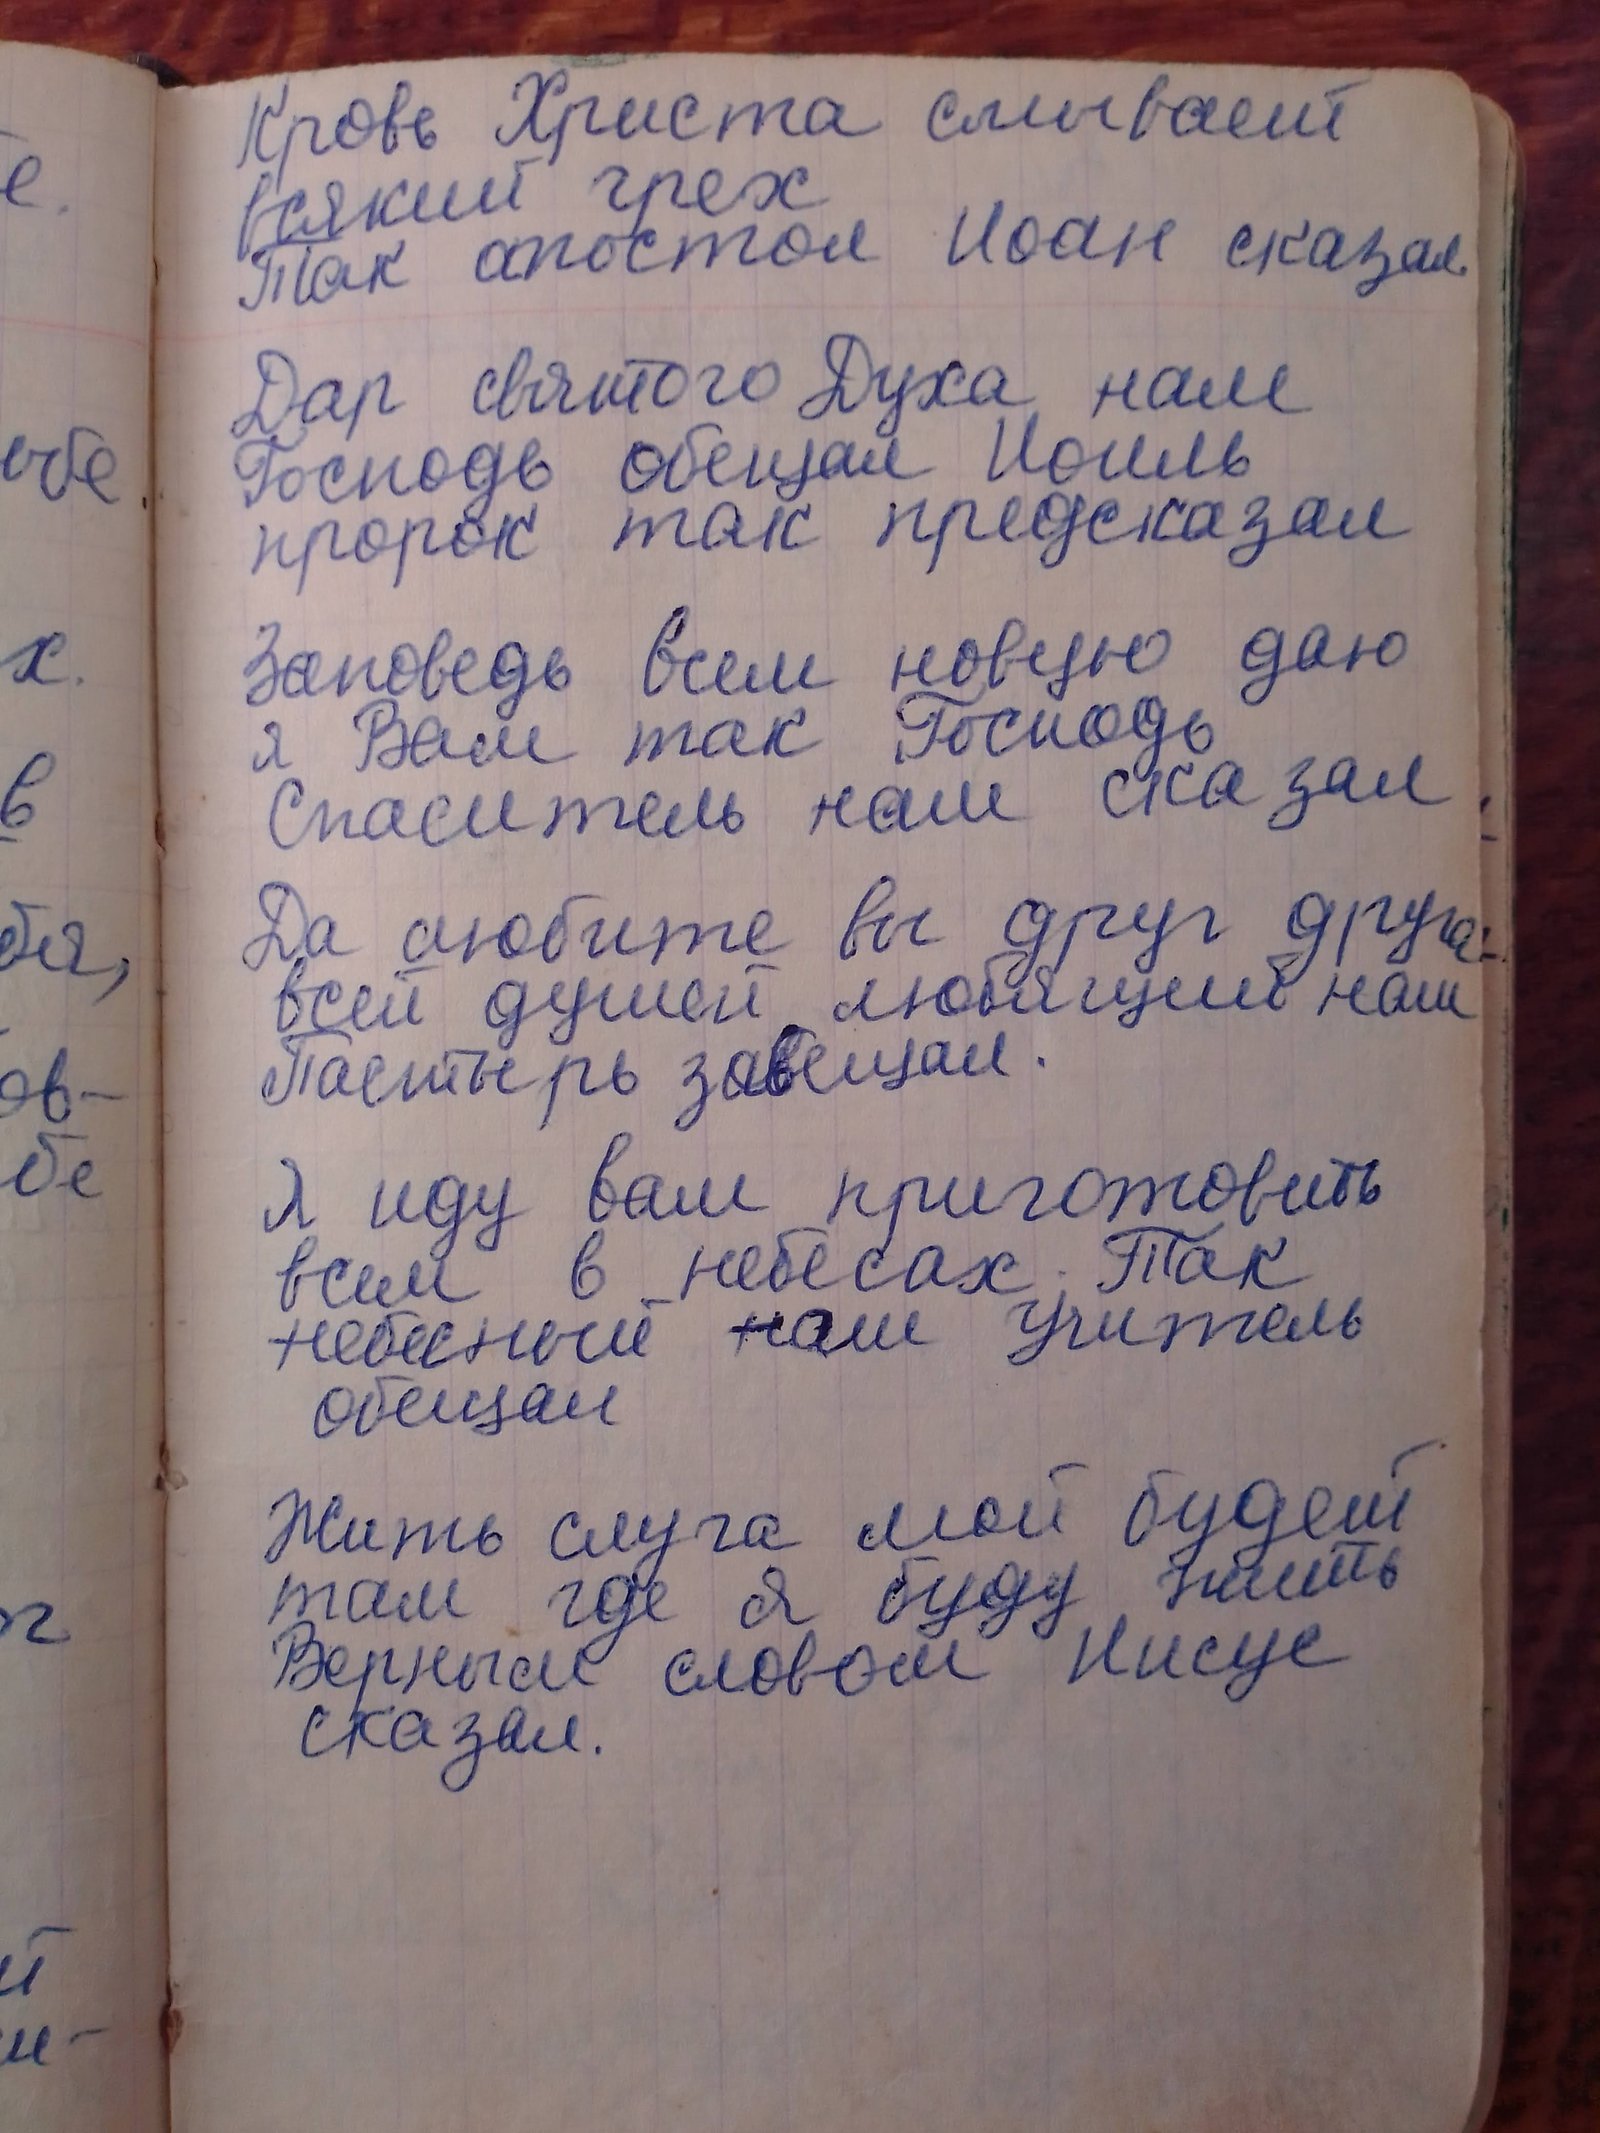 е.
ычбе
х.
в
бя,
ов-
бе
й
Кровь Христа смывает
всякий грех
Так апостол Иоан сказал.
Дар святого Духа нам
Господь обещал Иоиль
пророк так предсказал
Заповедь всем новую даю
я Вам так Господь
Спаситель нам сказал
Да любите вы друг друга
всей душей любящий наш
Пастырь завещал.
Я иду вам приготовить
всем в небесах. Так
небесный наш Учитель
обещал
Жить слуга мой будет
там где Я буду жить
Верным словом Иисус
сказал.